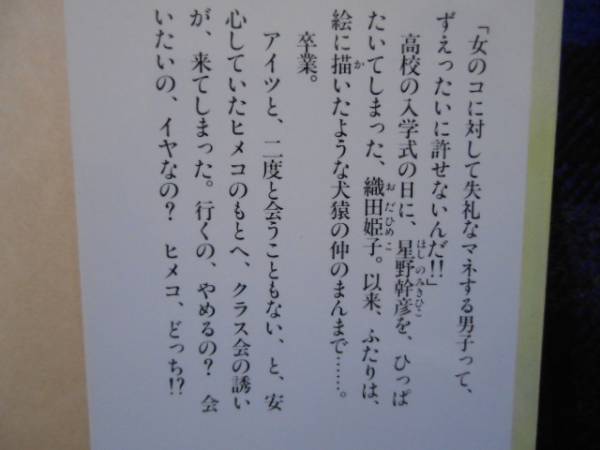 「女のコに対して失礼なマネする男子って、
ずえったいに許せないんだ!!」
高校の入学式の日に、星野幹彦を、ひっぱ
たいてしまった、織田姫子。以来、ふたりは、
絵に描いたような犬猿の仲のまんまで……。
卒業。
アイツと、二度と会うこともない、と、安
心していたヒメコのもとへ、クラス会の誘い
が、来てしまった。行くの、やめるの？　会
いたいの、イヤなの？　ヒメコ、どっち!?